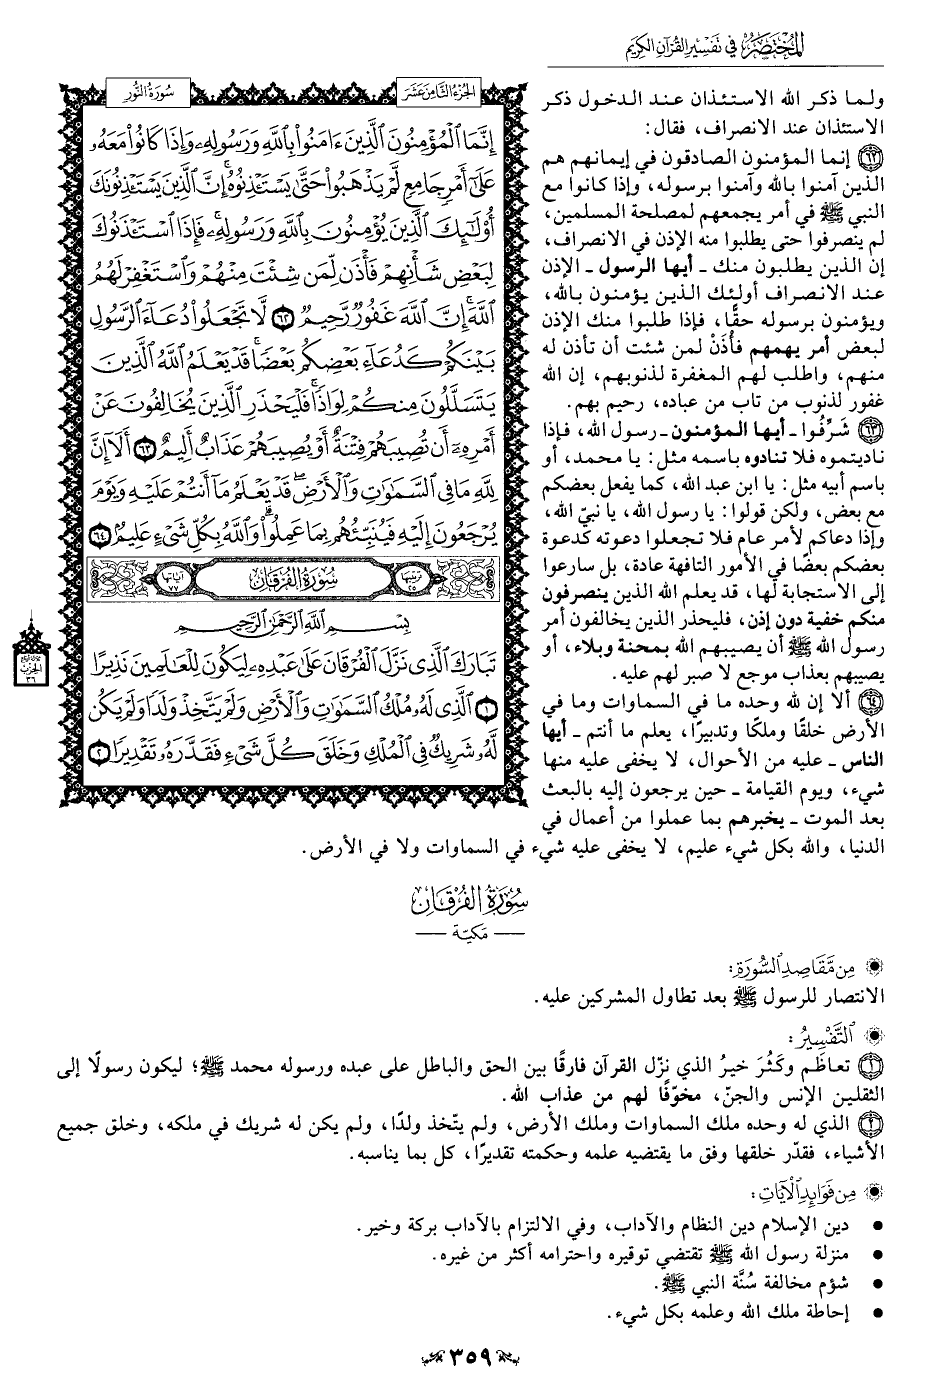 المختصر في تفسير القرآن الكريم
الجزء الثامن عشر
سورة النور
إِنَّمَا ٱلْمُؤْمِنُونَ ٱلَّذِينَ ءَامَنُوا۟ بِٱللَّهِ وَرَسُولِهِۦ وَإِذَا كَانُوا۟ مَعَهُۥ
عَلَىٰٓ أَمْرٍ جَامِعٍ لَّمْ يَذْهَبُوا۟ حَتَّىٰ يَسْتَـْٔذِنُوهُ ۚ إِنَّ ٱلَّذِينَ يَسْتَـْٔذِنُونَكَ
أُو۟لَـٰٓئِكَ ٱلَّذِينَ يُؤْمِنُونَ بِٱللَّهِ وَرَسُولِهِۦ ۚ فَإِذَا ٱسْتَـْٔذَنُوكَ
لِبَعْضِ شَأْنِهِمْ فَأْذَن لِّمَن شِئْتَ مِنْهُمْ وَٱسْتَغْفِرْ لَهُمُ
ٱللَّهَ ۚ إِنَّ ٱللَّهَ غَفُورٌ رَّحِيمٌ ٦٢ لَّا تَجْعَلُوا۟ دُعَآءَ ٱلرَّسُولِ
بَيْنَكُمْ كَدُعَآءِ بَعْضِكُم بَعْضًا ۚ قَدْ يَعْلَمُ ٱللَّهُ ٱلَّذِينَ
يَتَسَلَّلُونَ مِنكُمْ لِوَاذًا ۚ فَلْيَحْذَرِ ٱلَّذِينَ يُخَالِفُونَ عَنْ
أَمْرِهِۦٓ أَن تُصِيبَهُمْ فِتْنَةٌ أَوْ يُصِيبَهُمْ عَذَابٌ أَلِيمٌ ٦٣ أَلَآ إِنَّ
لِلَّهِ مَا فِى ٱلسَّمَـٰوَٰتِ وَٱلْأَرْضِ ۖ قَدْ يَعْلَمُ مَآ أَنتُمْ عَلَيْهِ وَيَوْمَ
يُرْجَعُونَ إِلَيْهِ فَيُنَبِّئُهُم بِمَا عَمِلُوا۟ ۗ وَٱللَّهُ بِكُلِّ شَىْءٍ عَلِيمٌۢ ٦٤
ترتيبها ٢٥ سورة الفرقان آياتها ٧٧
بِسْمِ ٱللَّهِ ٱلرَّحْمَـٰنِ ٱلرَّحِيمِ
تَبَارَكَ ٱلَّذِى نَزَّلَ ٱلْفُرْقَانَ عَلَىٰ عَبْدِهِۦ لِيَكُونَ لِلْعَـٰلَمِينَ نَذِيرًا
١ ٱلَّذِى لَهُۥ مُلْكُ ٱلسَّمَـٰوَٰتِ وَٱلْأَرْضِ وَلَمْ يَتَّخِذْ وَلَدًا وَلَمْ يَكُن
لَّهُۥ شَرِيكٌ فِى ٱلْمُلْكِ وَخَلَقَ كُلَّ شَىْءٍ فَقَدَّرَهُۥ تَقْدِيرًا ٢
الحزب
٣٦
ولما ذكر الله الاستئذان عند الدخول ذكر
الاستئذان عند الانصراف، فقال:
٦٢ إنما المؤمنون الصادقون في إيمانهم هم
الذين آمنوا بالله وآمنوا برسوله، وإذا كانوا مع
النبي ﷺ في أمر يجمعهم لمصلحة المسلمين،
لم ينصرفوا حتى يطلبوا منه الإذن في الانصراف،
إن الذين يطلبون منك ـ أيها الرسول ـ الإذن
عند الانصراف أولئك الذين يؤمنون بالله،
ويؤمنون برسوله حقًّا، فإذا طلبوا منك الإذن
لبعض أمر يهمهم فأْذَنْ لمن شئت أن تأذن له
منهم، واطلب لهم المغفرة لذنوبهم، إن الله
غفور لذنوب من تاب من عباده، رحيم بهم.
٦٣ شَرِّفُوا ـ أيها المؤمنون ـ رسول الله، فإذا
ناديتموه فلا تنادوه باسمه مثل: يا محمد، أو
باسم أبيه مثل: يا ابن عبد الله، كما يفعل بعضكم
مع بعض، ولكن قولوا: يا رسول الله، يا نبيّ الله،
وإذا دعاكم لأمر عام فلا تجعلوا دعوته كدعوة
بعضكم بعضًا في الأمور التافهة عادة، بل سارعوا
إلى الاستجابة لها، قد يعلم الله الذين ينصرفون
منكم خفية دون إذن، فليحذر الذين يخالفون أمر
رسول الله ﷺ أن يصيبهم الله بمحنة وبلاء، أو
يصيبهم بعذاب موجع لا صبر لهم عليه.
٦٤ ألا إن لله وحده ما في السماوات وما في
الأرض خلقًا وملكًا وتدبيرًا، يعلم ما أنتم ـ أيها
الناس ـ عليه من الأحوال، لا يخفى عليه منها
شيء، ويوم القيامة ـ حين يرجعون إليه بالبعث
بعد الموت ـ يخبرهم بما عملوا من أعمال في
الدنيا، والله بكل شيء عليم، لا يخفى عليه شيء في السماوات ولا في الأرض.
سورة الفرقان
— مكية —
من مقاصد السورة:
الانتصار للرسول ﷺ بعد تطاول المشركين عليه.
التفسير:
١ تعاظَم وكَثُرَ خيرُ الذي نزّل القرآن فارقًا بين الحق والباطل على عبده ورسوله محمد ﷺ؛ ليكون رسولًا إلى
الثقلين الإنس والجنّ، مخوّفًا لهم من عذاب الله.
٢ الذي له وحده ملك السماوات وملك الأرض، ولم يتّخذ ولدًا، ولم يكن له شريك في ملكه، وخلق جميع
الأشياء، فقدّر خلقها وفق ما يقتضيه علمه وحكمته تقديرًا، كل بما يناسبه.
من فوائد الآيات:
• دين الإسلام دين النظام والآداب، وفي الالتزام بالآداب بركة وخير.
• منزلة رسول الله ﷺ تقتضي توقيره واحترامه أكثر من غيره.
• شؤم مخالفة سُنَّة النبي ﷺ.
• إحاطة ملك الله وعلمه بكل شيء.
٣٥٩